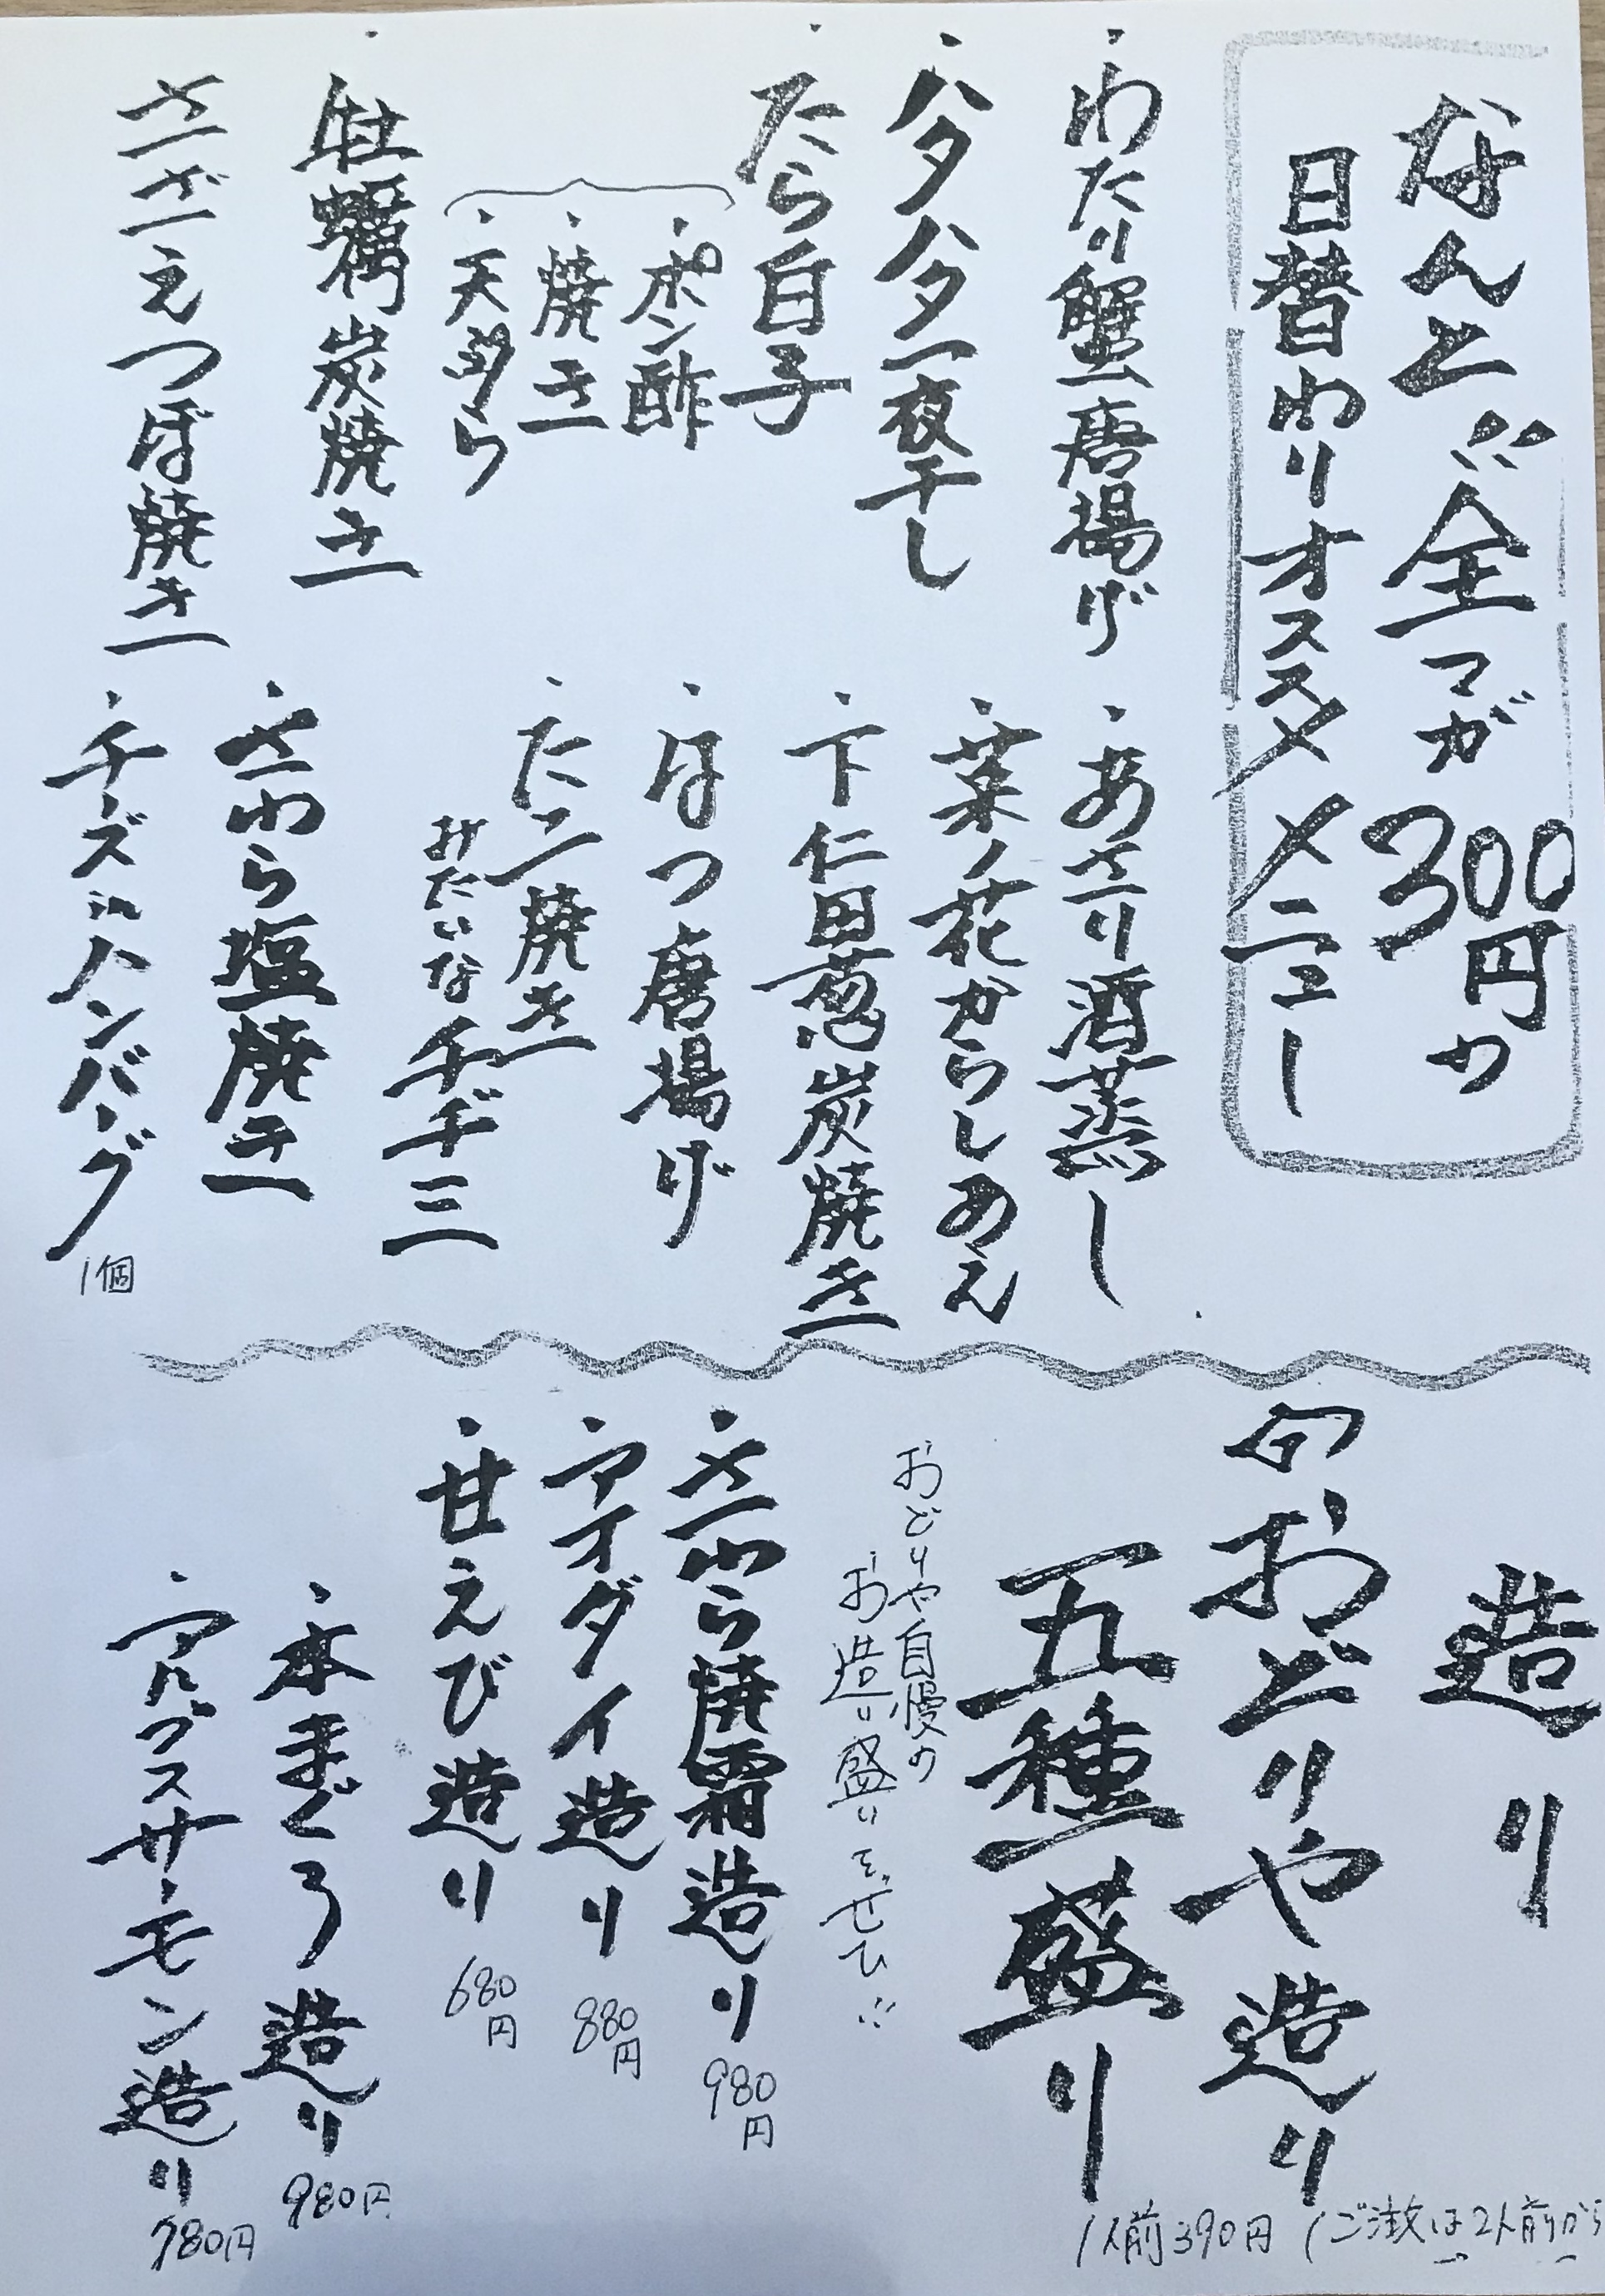 なんと〃全マガ300円の
日替わりオススメメニュー
・わたり蟹唐揚げ
・ハタハタ一夜干し
・たら白子
・ポン酢
・焼き
・天ぷら
・牡蠣炭焼き
さざえつぼ焼き
・あさり酒蒸し
・菜ノ花からしあえ
・下仁田葱炭焼き
・ほつ唐揚げ
・たこ焼き
みたいなチヂミ
・さわら塩焼き
・チーズinハンバーグ
1個
造り
おどりや造り
五種盛り
1人前390円(ご注文は2人前から
おどりや自慢の
お造り盛りをぜひ
・さわら焼霜造り 980円
・アオダイ造り 880円
・甘えび造り 680円
・本まぐろ造り 980円
・アルプスサーモン造り 780円